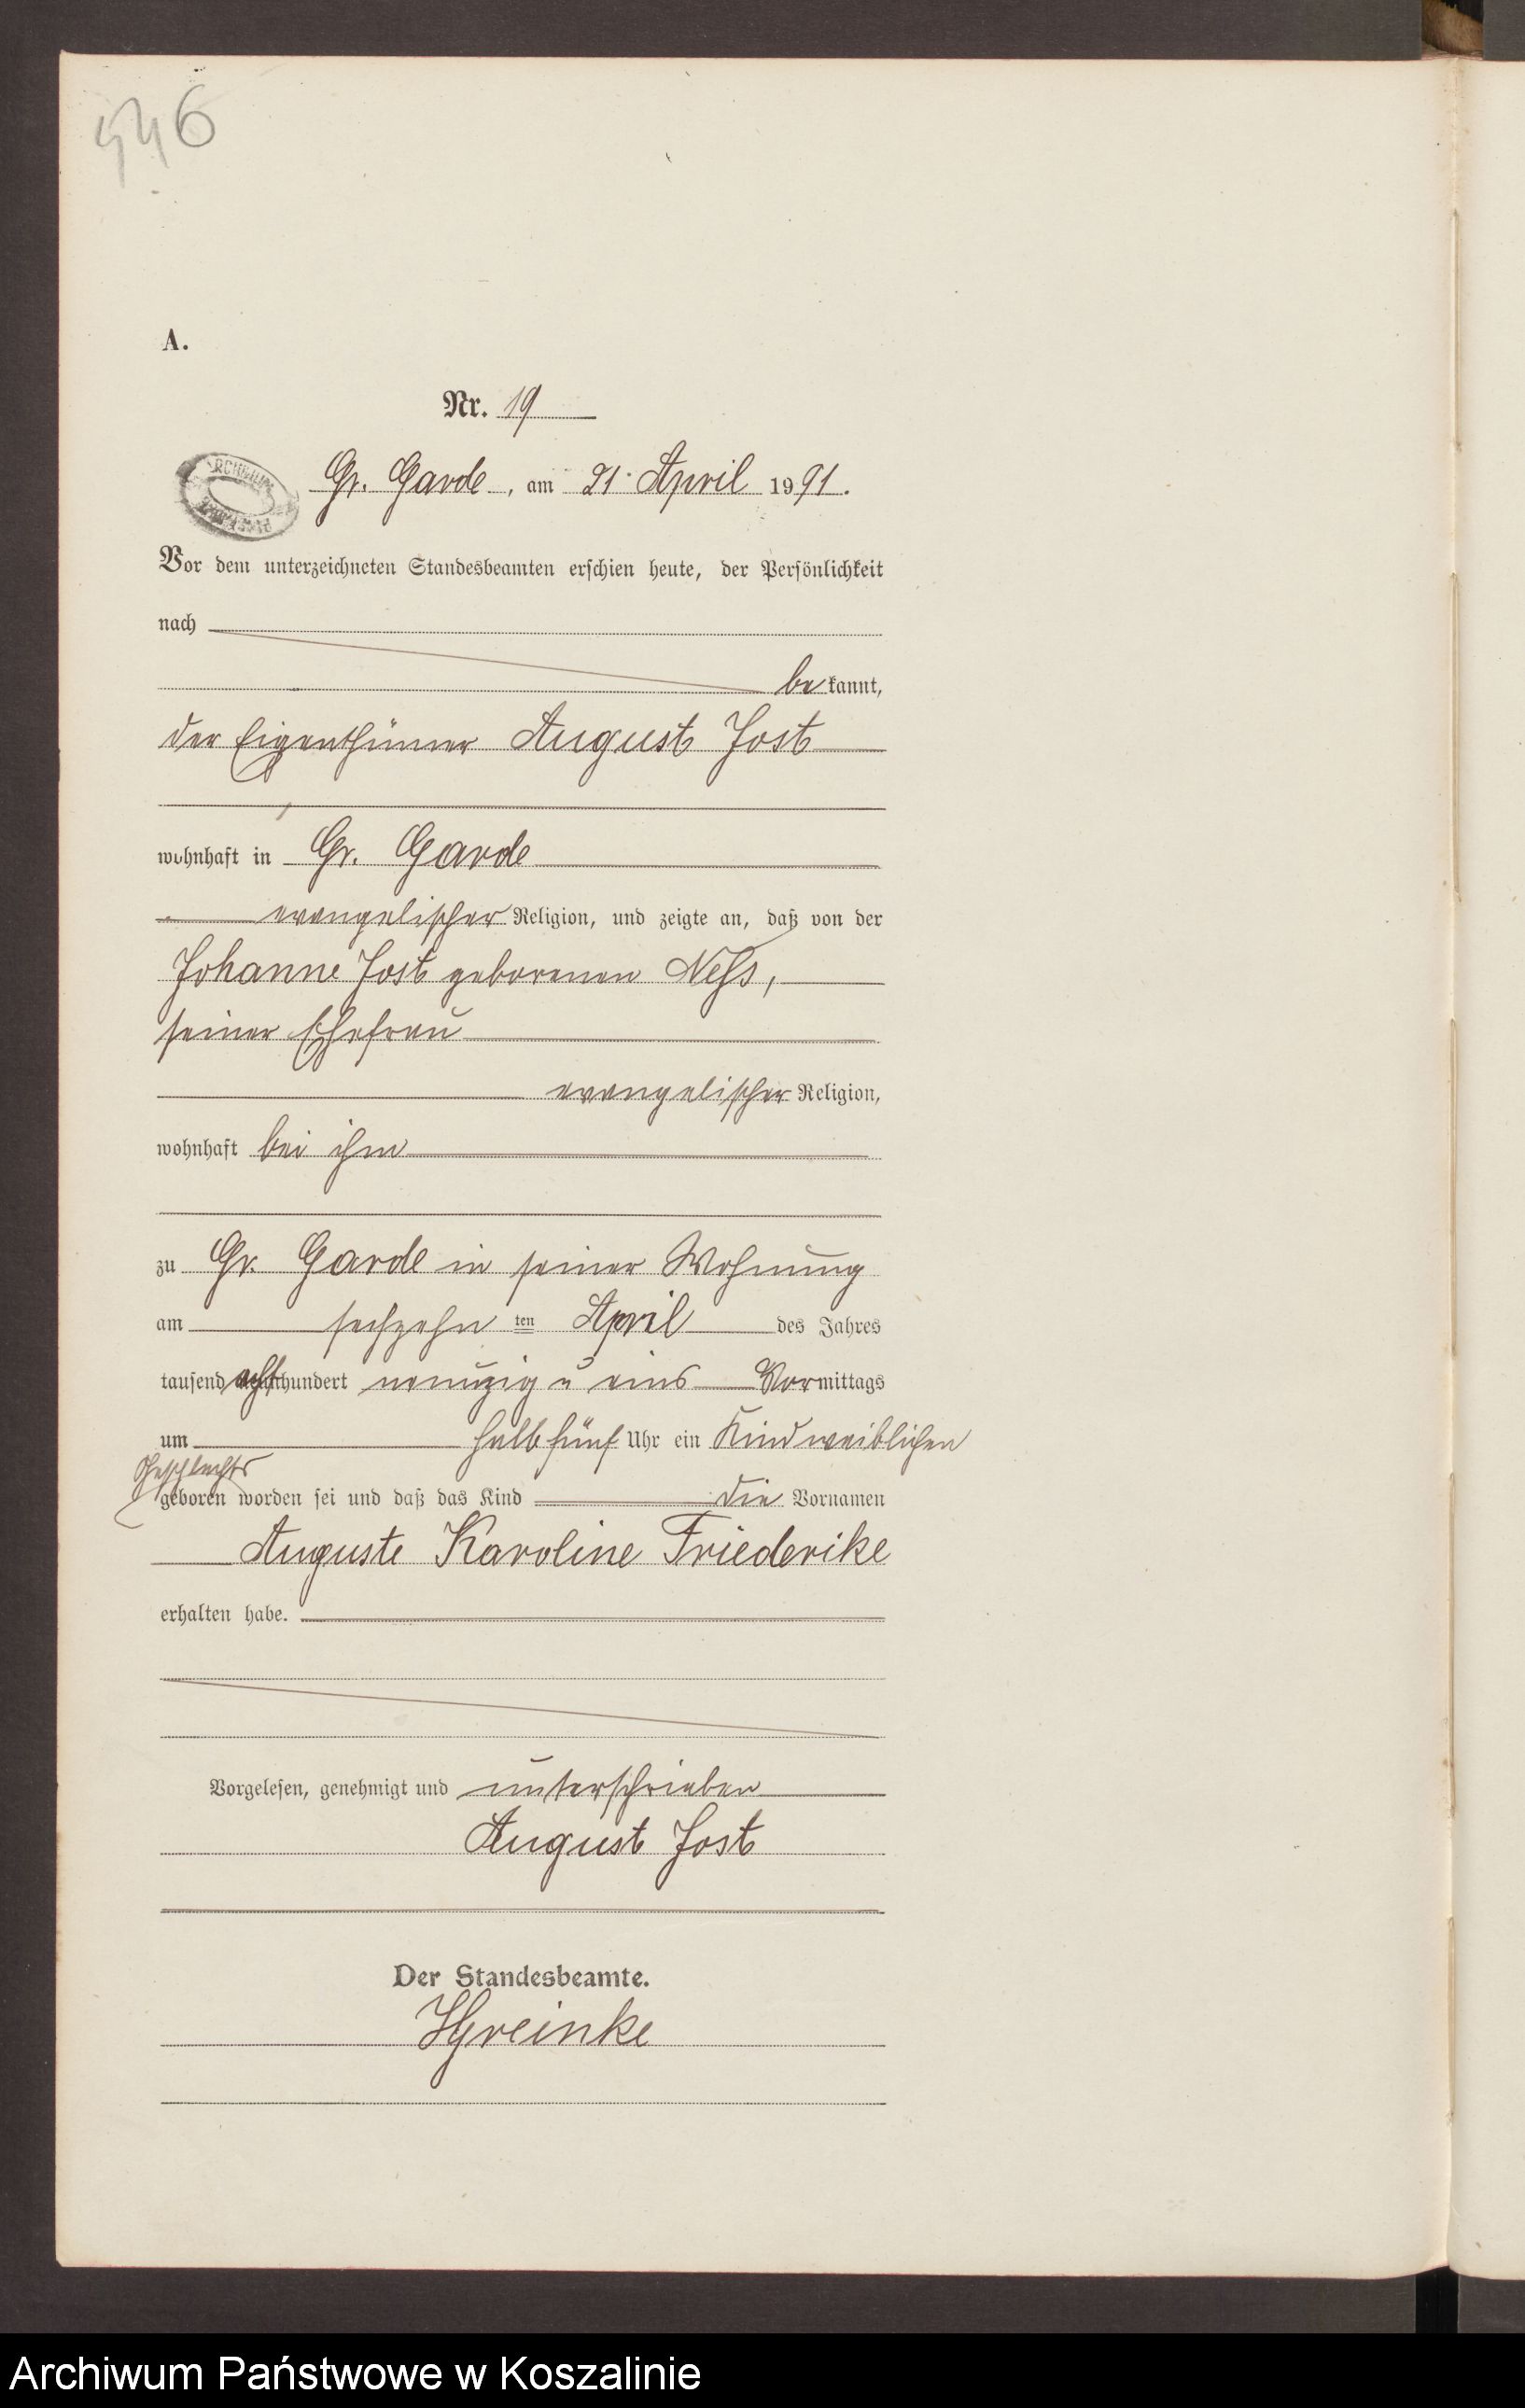 546
A.
Nr. 19
Gr. Garde, am 21. April 1991.
Vor dem unterzeichneten Standesbeamten erschien heute, der Persönlichkeit
nach
bekannt,
der Eigenthümer August Jost
wohnhaft in Gr. Garde
evangelischer Religion, und zeigte an, daß von der
Johanne Jost geborenen Neß,
seiner Ehefrau
evangelischer Religion,
wohnhaft bei ihm
zu Gr. Garde in seiner Wohnung
am sechzehn ten April des Jahres
tausend acht hundert neunzig u eins Vormittags
um halb fünf Uhr ein Kind weiblichen
Geschlechts
geboren worden sei und daß das Kind die Vornamen
Auguste Karoline Friederike
erhalten habe.
Vorgelesen, genehmigt und unterschrieben
August Jost
Der Standesbeamte.
Archiwum Państwowe w Koszalinie